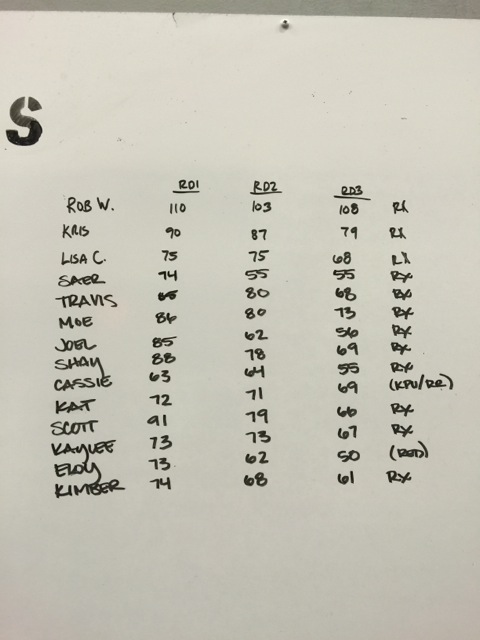 S
RD1 RD2 RD3
ROB W. 110 103 108 RX
KRIS 90 87 79 RX
LISA C. 75 75 68 RX
SAER 74 55 55 RX
TRAVIS 80 68 RX
MOE 86 80 73 RX
JOEL 85 62 56 RX
SHAY 88 78 69 RX
CASSIE 63 64 55 RX
KAT 72 71 69 (KPU/RR)
SCOTT 91 79 66 RX
KAYLEE 73 73 67 RX
ELOY 73 62 50 (RED)
KIMBER 74 68 61 RX